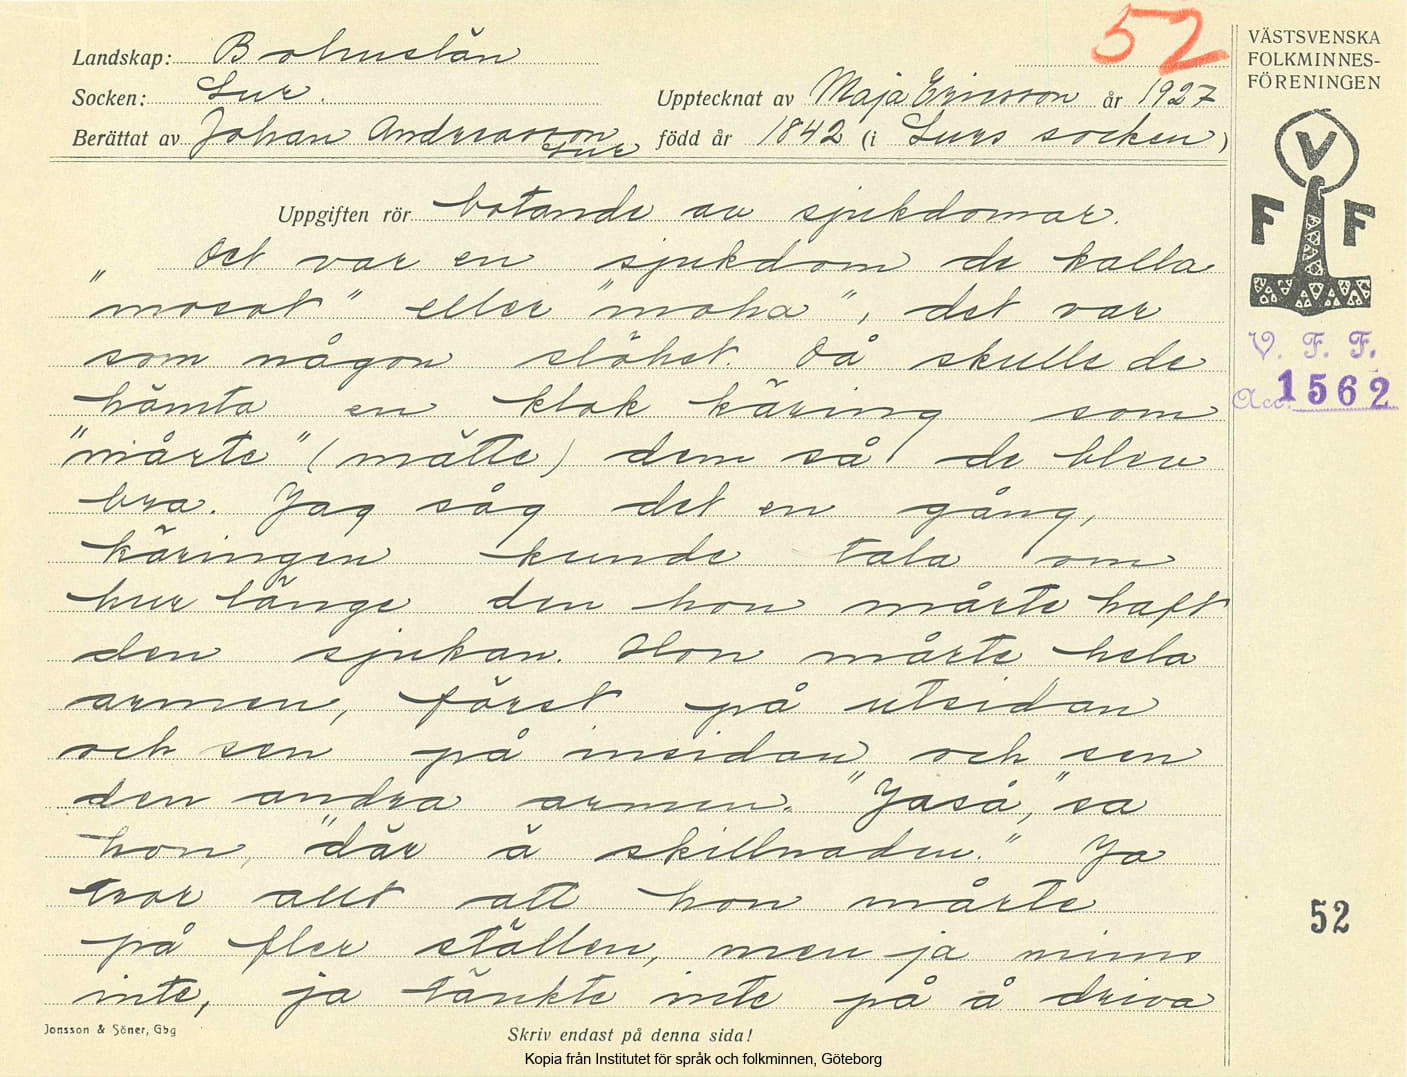 52
Landskap: Bohuslän
Socken: Lur.
Upptecknat av Maja Ericsson år 1927
Berättat av Johan Andreasson
Lur
född år 1842 (i Lurs socken)
VÄSTSVENSKA
FOLKMINNES-
FÖRENINGEN
V
F F
V. F. F.
Acc. 1562
Uppgiften rör botande av sjukdomar.
Det var en sjukdom de kalla
"mosot" eller "moha", det var
som någon slöhet. Då skulle de
hämta en klok käring som
"mårte" (mätte) dem så de blev
bra. Jag såg det en gång,
käringen kunde tala om
hur länge den hon mårte haft
den sjukan. Hon mårte hela
armen, först på utsidan
och sen på insidan och sen
den andra armen. "Jaså," sa
hon, "där ä skillnaden." Ja
tror allt att hon mårte
på fler ställen, men ja minns
inte, ja tänkte inte på å driva
52
Jonsson & Söner, Gbg
Skriv endast på denna sida!
Kopia från Institutet för språk och folkminnen, Göteborg